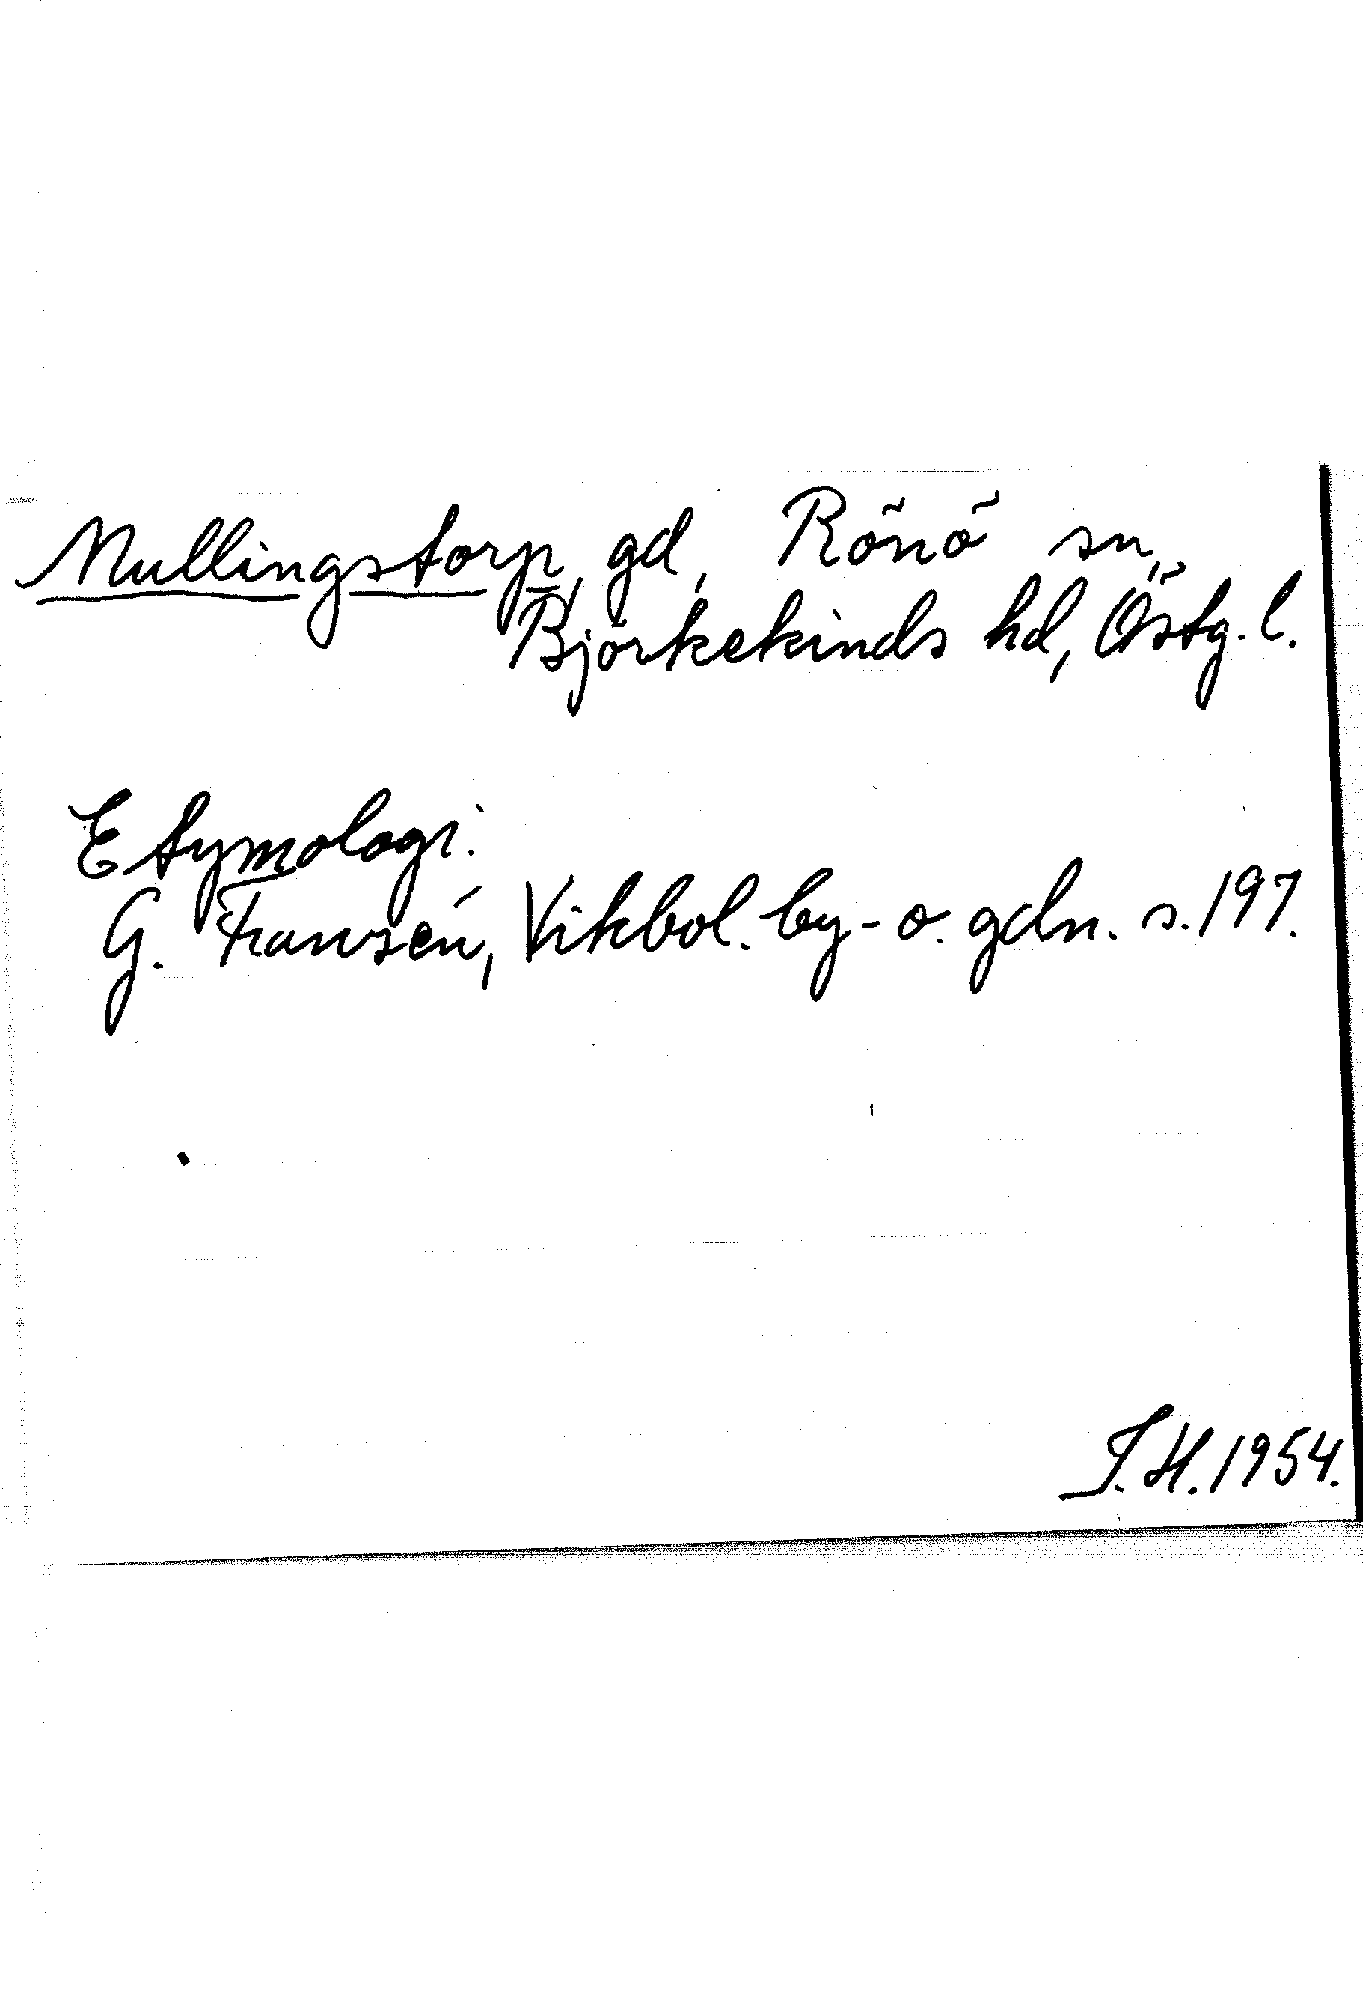 Mullingstorp, gd, Rönö sn,
Björkekinds hd, Östg. l.
Etymologi:
G. Fransén, Vikbol. by- o. gdn. s. 197.
T. H. 1954.